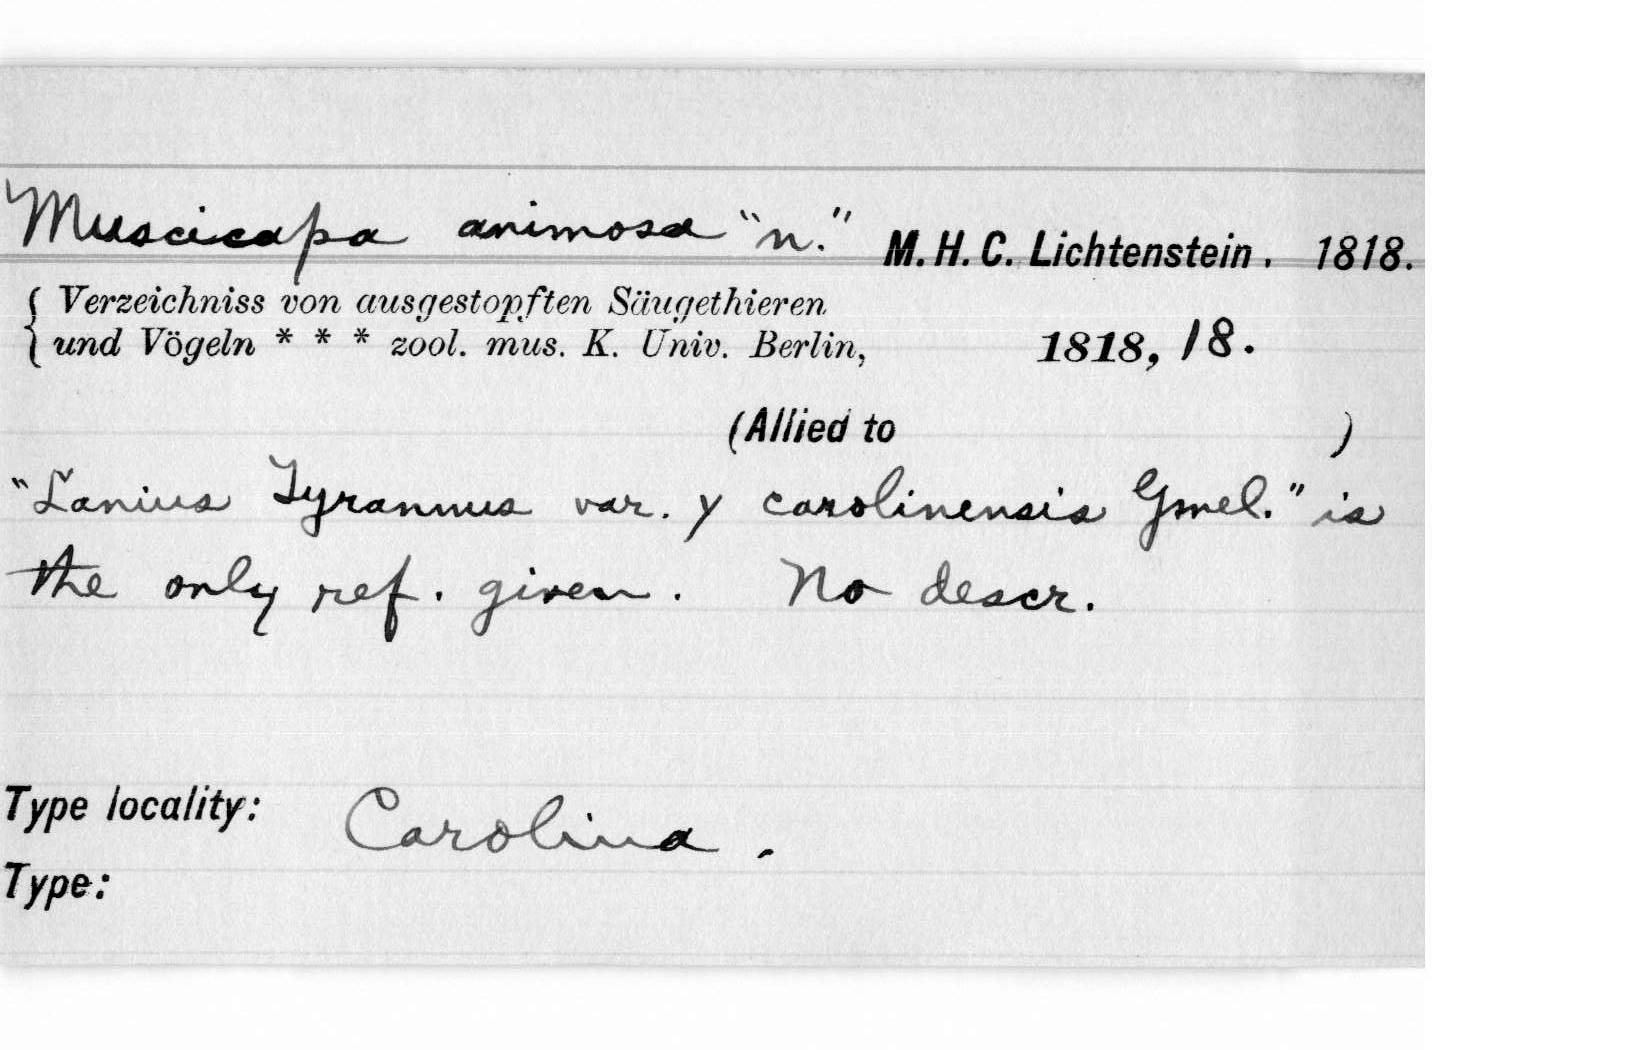 Muscicapa animosa "n." M. H. C. Lichtenstein. 1818.
Verzeichniss von ausgestopften Säugethieren
und Vögeln * * * zool. mus. K. Univ. Berlin, 1818, 18.
(Allied to )
"Lanius Tyrannus var. γ carolinensis Gmel." is
the only ref. given. No descr.
Type locality: Carolina.
Type: